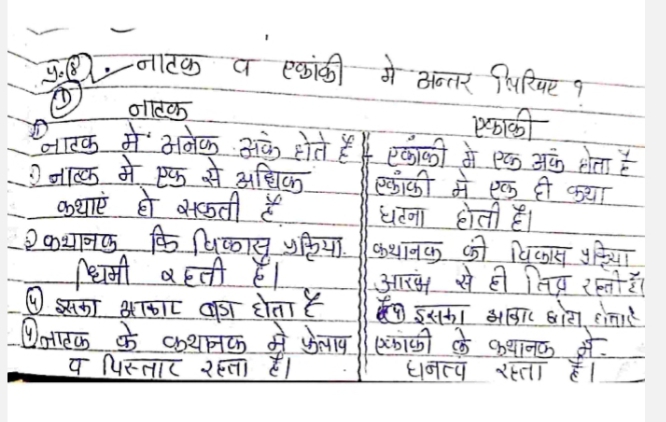 प्र.(8) नाटक व एकांकी मे अन्तर लिखिए ?
① नाटक
एकाकी
① नाटक में अनेक अकं होते है
एकांकी मे एक अकं होता है
२ नाटक में एक से अधिक
एकांकी में एक ही कथा
कथाएं हो सकती है
घटना होती है।
३ कथानक कि विकास प्रक्रिया
कथानक की विकास प्रक्रिया
धिमी रहती है।
आरंभ से ही तिव्र रहती है।
④ इसका आकार बडा होता है
④ इसका आकार छोटा होता है
⑤ नाटक के कथानक में फेलाव
एकांकी के कथानक में
व विस्तार रहता है।
घनत्व रहता है।